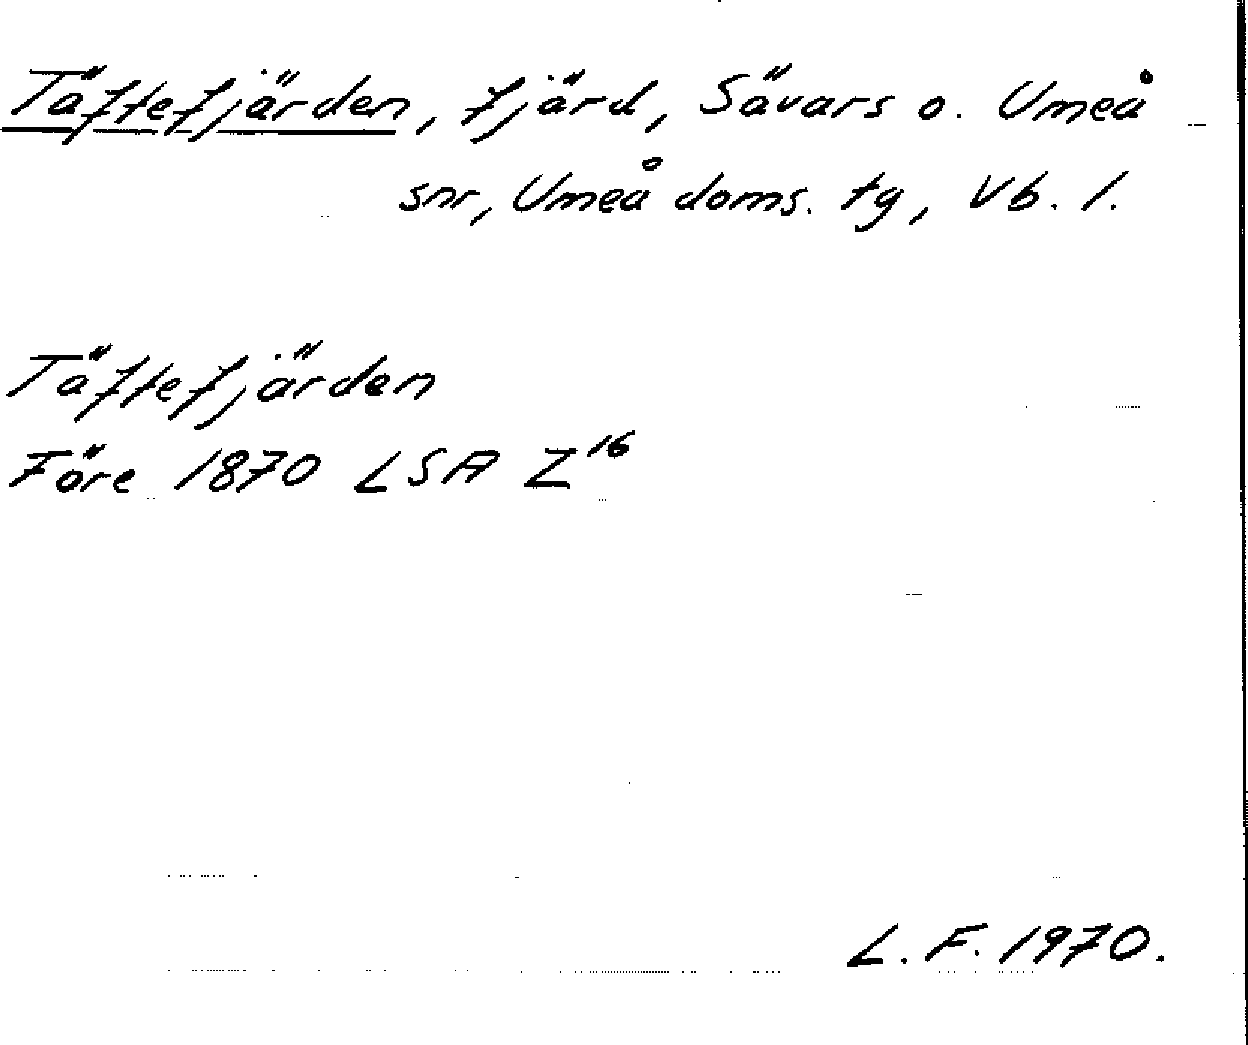 Täftefjärden, fjärd, Sävars o. Umeå
snr, Umeå doms. tg, Vb. l.
Täftefjärden
Före 1870 LSA Z16
L. F. 1970.